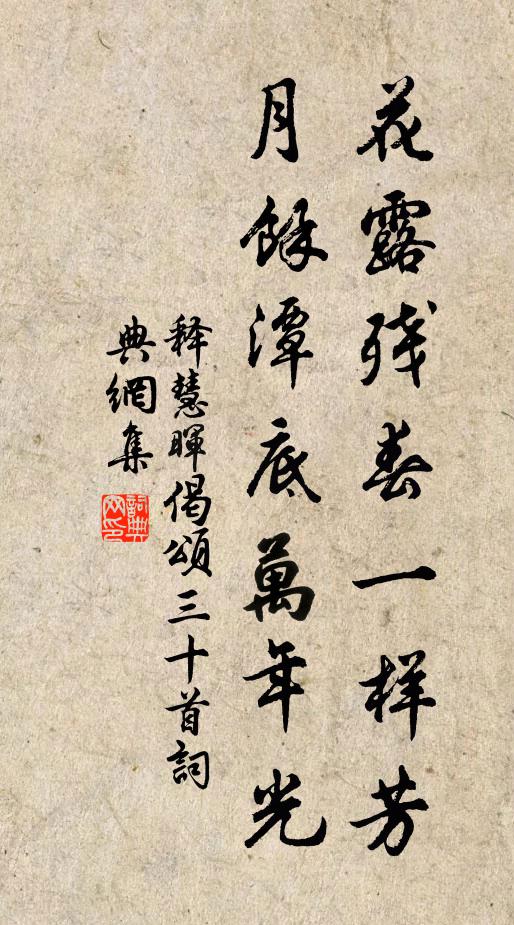 花露残春一样芳
月餘潭底萬年光
释慧暉偈頌三十首詞
典網集
詞典网印